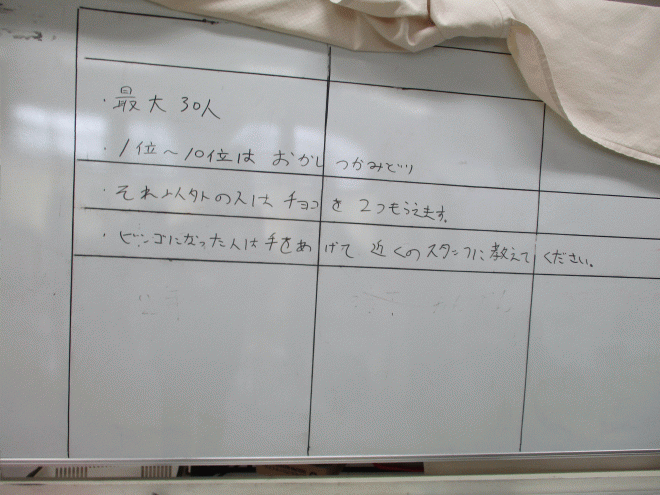 ・最大 30人
・1位～10位は おかし つかみどり
・それ以外の人は チョコを 2つもらえます。
・ビンゴになった人は手をあげて 近くのスタッフに教えて ください。